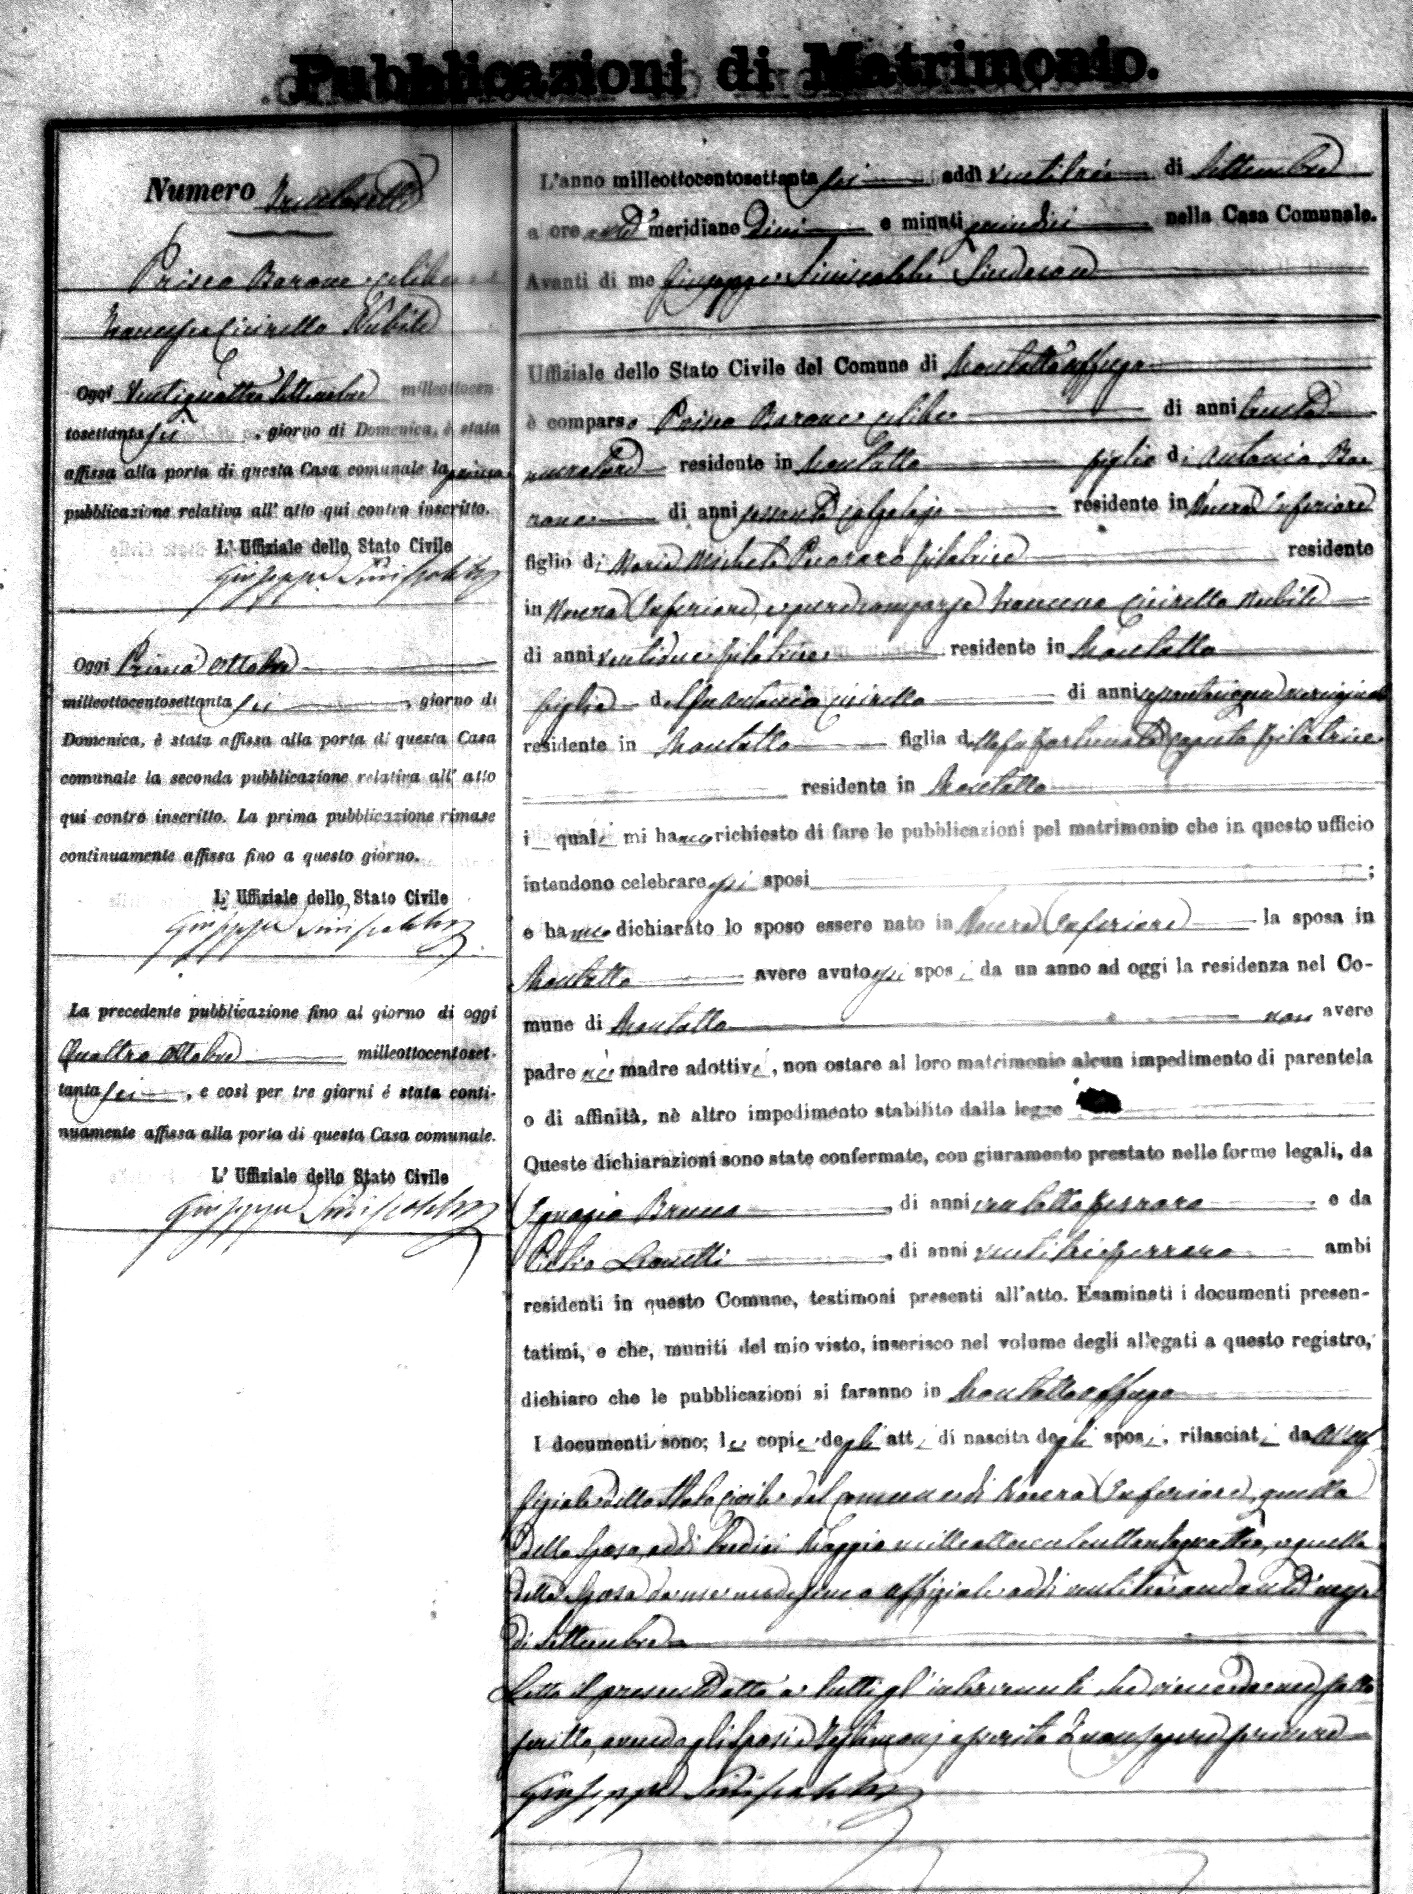 Pubblicazioni di Matrimonio.
Numero Trentasette
Prisco Barone celibe e
Francesca Cicirello Nubile
Oggi Ventiquattro Settembre milleottocen-
tosettanta sei, giorno di Domenica, è stata
affissa alla porta di questa Casa comunale la prima
pubblicazione relativa all' atto qui contro inscritto.
L' Uffiziale dello Stato Civile
Giuseppe Siniscalchi
Oggi Primo Ottobre
milleottocentosettanta sei, giorno di
Domenica, è stata affissa alla porta di questa Casa
comunale la seconda pubblicazione relativa all' atto
qui contro inscritto. La prima pubblicazione rimase
continuamente affissa fino a questo giorno.
L' Uffiziale dello Stato Civile
Giuseppe Siniscalchi
La precedente pubblicazione fino al giorno di oggi
Quattro Ottobre milleottocentoset-
tanta sei, e così per tre giorni è stata conti-
nuamente affissa alla porta di questa Casa comunale.
L' Uffiziale dello Stato Civile
Giuseppe Siniscalchi
L'anno milleottocentosettanta sei addì ventitrè di Settembre
a ore anti meridiane dieci e minuti quindici nella Casa Comunale.
Avanti di me Giuseppe Siniscalchi Sindaco
Uffiziale dello Stato Civile del Comune di Montalto Uffugo
è comparso Prisco Barone celibe di anni trenta
muratore residente in Montalto figlio di Antonio Ba-
rone di anni sessanta calzolajo residente in Nocera Inferiore
figlio di Maria Michela Pecoraro filatrice residente
in Nocera Inferiore, e pure comparsa Francesca Cicirello Nubile
di anni ventidue filatrice residente in Montalto
figlia del fu Antonio Cicirello di anni
residente in Montalto figlia della fu Fortunata Caputo filatrice
residente in Montalto
i quali mi hanno richiesto di fare le pubblicazioni pel matrimonio che in questo ufficio
intendono celebrare essi sposi ;
e hanno dichiarato lo sposo essere nato in Nocera Inferiore la sposa in
Montalto avere avuto essi sposi da un anno ad oggi la residenza nel Co-
mune di Montalto non avere
padre nè madre adottivi, non ostare al loro matrimonio alcun impedimento di parentela
o di affinità, nè altro impedimento stabilito dalla legge
Queste dichiarazioni sono state confermate, con giuramento prestato nelle forme legali, da
Ignazio Bruno, di anni ventotto ferraro e da
Pietro Zanetti, di anni ventitrè ferraro ambi
residenti in questo Comune, testimoni presenti all'atto. Esaminati i documenti presen-
tatimi, e che, muniti del mio visto, inserisco nel volume degli allegati a questo registro,
dichiaro che le pubblicazioni si faranno in Montalto Uffugo
I documenti sono; le copie degli atti di nascita degli sposi, rilasciati da
fiziale dello Stato Civile del Comune di Nocera Inferiore, quella
dello Sposo, addì tredici Maggio milleottocentosettantaquattro, e quella
della Sposa da me medesimo Uffiziale addì ventitrè andante mese
di Settembre
Letto il presente atto a tutti gl' intervenuti, che viene da me solo
scritto, avendo gli sposi e testimonj asserito non sapere scrivere
Giuseppe Siniscalchi